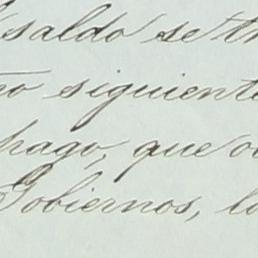 saldo se
siguiente
pago, que
Gobiernos,